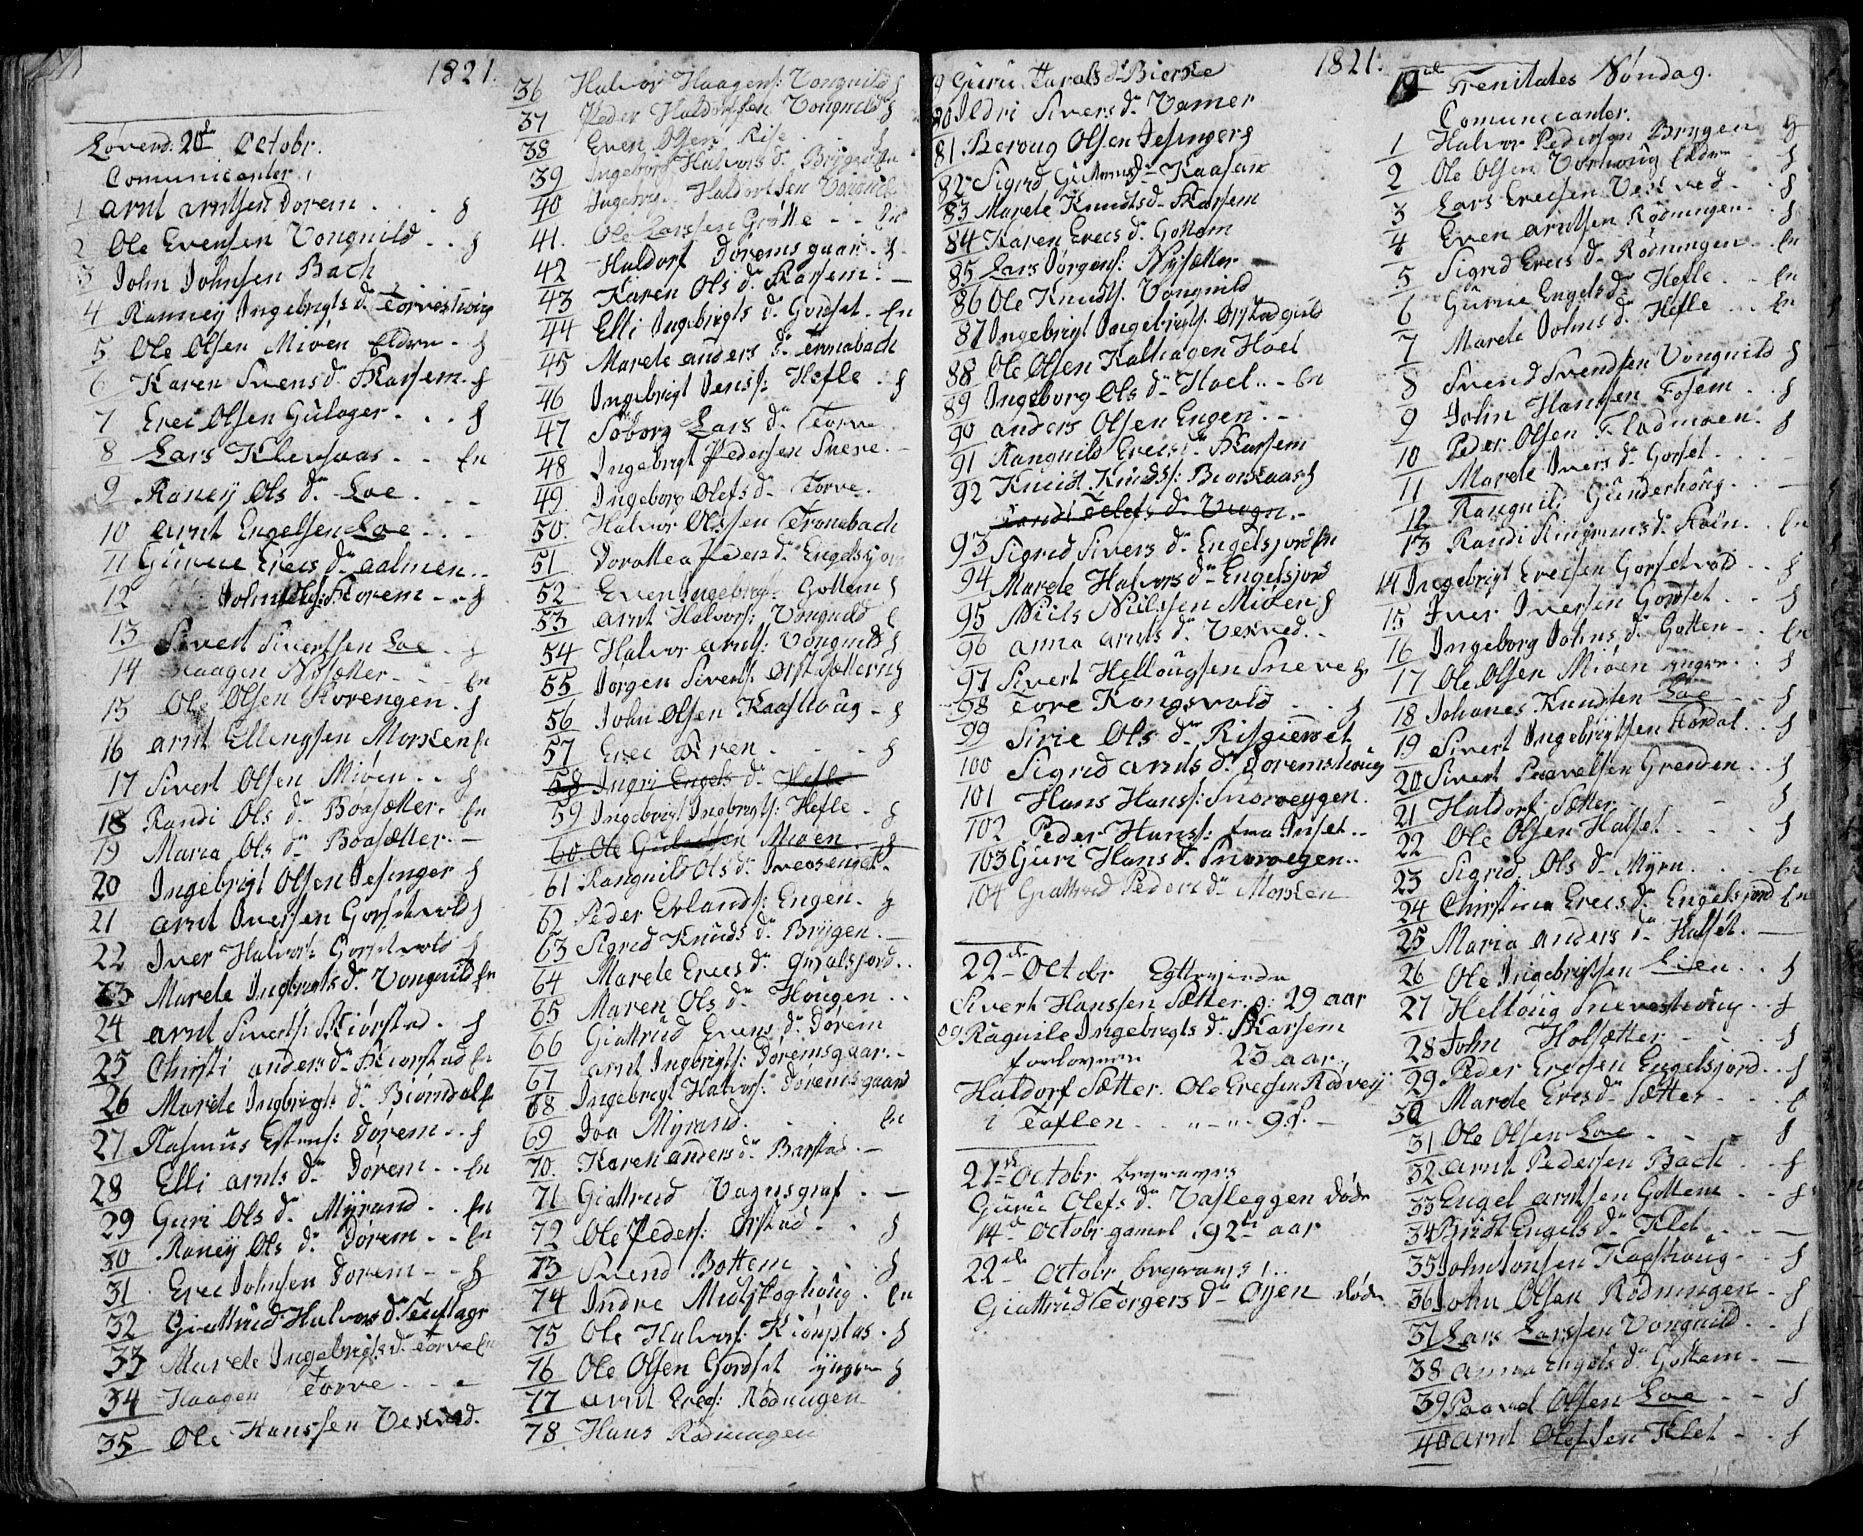 1821.
Løverd. 20de Octobr.
Comunicanter
1 Arnt Arntsen Dorem . . . . f
2 Ole Evensen Vongnild . . f
3 John Johnsen Bach
4 Ranney Ingebrigts d. Torveshoug
5 Ole Olsen Miøen Eldre . f
6 Karen Svens d. Karsem . f
7 Erec Olsen Gulager . . . f
8 Lars Klevgaas . . En
9 Raney Ols d. Loe . . .
10 Arnt Engelsen Loe . . .
11 Guruie Erecs d. aalmen . .
12 Johnsen Horem . . f
13 Sivert Sivertsen Loe . f
14 Haagen Nysætter . . . En
15 Ole Olsen Horengen . f
16 Arnt Ellingsen Morken f
17 Sivert Olsen Miøen . . f
18 Randi Ols d. Boasætter. En
19 Maria Ols d. Boasætter. —
20 Ingebrigt Olsen Jesinger f
21 Arnt Iversen Gorsetvold f
22 Iver Halvors: Gorsetvold f
23 Marete Ingbrigts d. Vongnild En
24 Arnt Siverts: Kiørstad . f
25 Christi anders d. Kiorstad En
26 Marete Ingbrigts d. Biørndal En
27 Rasmus Estens: Dørem . . f
28 Elli arnts d. Dørem . . En
29 Guri Ols d. Myrand . . En
30 Raney Ols d. Dørem . . En
31 Erec Johnsen Dorem . . f
32 Giattrud Halvors d.
33 Marete Ingebrigts d. Torve En
34 Haagen Torve . . .
35 Ole Hanssen Vekved.
36 Halvor Haagens: Vongnild f
37 Peder Haldorsen Vongnild f
38 Even Olsen Rise . . . f
39 Ingeborg Halvors d. Brygen En
40 Ingebrigt Haldorsen Vongnild
41. Ole Larssen Grøtte . . En
42 Haldorf Doremsgaar . f
43 Karen Ols d. Karsem . —
44 Elli Ingebrigts d. Gorset . En
45 Marete anders d. Tronabach
46 Ingebrigt Jens: Hefle . f
47 Soborg Lars d. Torve
48 Ingebrigt Pedersen Sneve . —
49. Ingeborg Olefs d. Torve .
50. Halvor Olssen Tronebach
51 Dorottea Peders d. Engelsjord
52 Even Ingebrigt: Gottem f
53 Arnt Halvors: Vongnild f
54 Halvor Arnts: Vongnild f
55 Jorgen Siverts:
56 John Olsen Kaashoug . f
57 Erec . . . . f
58 Ingri Engels d. Hefle
59 Ingebrigt Ingebrigts: Hefle . f
60. Ole Miøen . f
61 Rangnild Ols d.
62 Peder Erlands: Engen . f
63 Sigrid Knuds d. Brygen . —
64 Marete Erecs d. . .
65 Maren Ols d. Hougen . .
66 Giattrud Evens d. Dørem
67 Arnt Ingbrigts: Doremsgaar . —
68 Ingebrigt Halvors: Doremsgaard
69 Joa Myrand . . En
70. Karen anders d. Barstad . —
71 Giattrud Vagnsgraf . —
72 Ole Peders: Ørstad . . f
73 Svend Bottem . . . f
74 Indre Midskoghoug . En
75 Ole Halvors: Kiønplas . f
76 Ole Olsen Gordset yngre f
77 Arnt Erecs: Rodningen
78. Hans Rodningen
1821.
79 Guru Harals d. Bierke
80 Ildri Sivers d. Vamer
81. Beroug Olsen Jesinger f
82 Sigrid d. Kaasan
83 Marete Knudts d. Karsem
84 Karen Erecs d. Gottem
85 Lars Jorgens: Nysetter
86 Ole Knudts. Vongnild
87 Ingebrigt Ingebrigts.
88 Ole Olsen Kalhagen Hoel
89 Ingeborg Ols d. Hoel . . En
90 anders Olsen Engen . .
91 Rangnild Erecs d. Karsem
92 Knudt Knuds: Biorkaas f
93 Sigrid Sivers d. Engelsjord En
94 Marete Halvors d. Engelsjord
95 Niels Nielssen Miøen f
96 Anna Arnts d. Vekved . .
97 Sivert Hellougsen Sneve f
98 Tore Kongsvold . . f
99 Sirie Ols d. Risgierdet
100 Sigrid Arnts d. Doremshoug
101 Hans Hans: Snoeveggen.
102 Peder Hans: fra Inset . .
103 Guri Hans d. Snoevegen . .
104 Giattrud Peders d. Morken
22de Octobr Egteviede
Sivert Hanssen Sætter a: 29 aar
og Raguile Ingebrigts d. Karsem
forlovere 23 aar .
Haldorf Sætter. Ole Erecsen Rødvey
i Taflen . . „ - „ - 9 s. —
21de Octobr begraves
Guru Olefs d. Vasleggen døde
14de Octobr gamel 92de aar
22de Octobr begraves 1 . .
Giattrud Torgers d. Oyen døde
19de Trenitates Søndag.
Comunicanter.
1 Halvor Pedersen Brygen f
2 Ole Olsen Vorhoug Eldre . f
3 Lars Erecsen Vekved . . f
4 Even Arntsen Rodningen . f
5 Sigrid Erecs d. Rodningen . . En
6 Gurue Engels d. Hefle . . En
7 Marete Johns d. Hefle . . En
8 Svend Svendsen Vongnild f
9 John Hansen Fosem . . f
10 Peder Olsen Fladmoen . f
11 Marete Ivers d. Gorset . . —
12 Rangnil Gunderhoug . . —
13 Randi d. . . En
14 Ingebrigt Erecsen Gorsetvold . . f
15 Iver Iversen Gordset . . f
16 Ingeborg Johns d. Gotten . . En
17 Ole Olsen Miøen yngre . . f
18 Johanes Knudtzen Loe . . f
19 Sivert Ingebrigtsen Hordal . . f
20 Sivert Paavelsen Grenden . . f
21 Haldorf: Sætter . . f
22 Ole Olsen Halset . . . f
23 Sigrid Ols d. Myren . . En
24 Christina Erecs d. Engelsjord En
25 Maria Anders d. Halset . —
26 Ole Ingebrigtsen Lien . . f
27 Helloug Sneveshoug . . f
28 John Holsætter . . . f
29 Peder Erecsen Engelsjord . . f
30 Marete Erecs d. Sætter . . f
31 Ole Olsen Loe . . . f
32 Arnt Pedersen Bach . . f
33 Engel Arntsen Gottem . . f
34 Engels d. Klet . . —
35 John Jonsen Kaashoug . . f
36 John Olsen Rodningen . f
37 Lars Larssen Vongnild . . f
38 Anna Engels d. Gottem . . —
39 Paavel Olsen Loe . . f
40 Arnt Olefsen Klet . . f